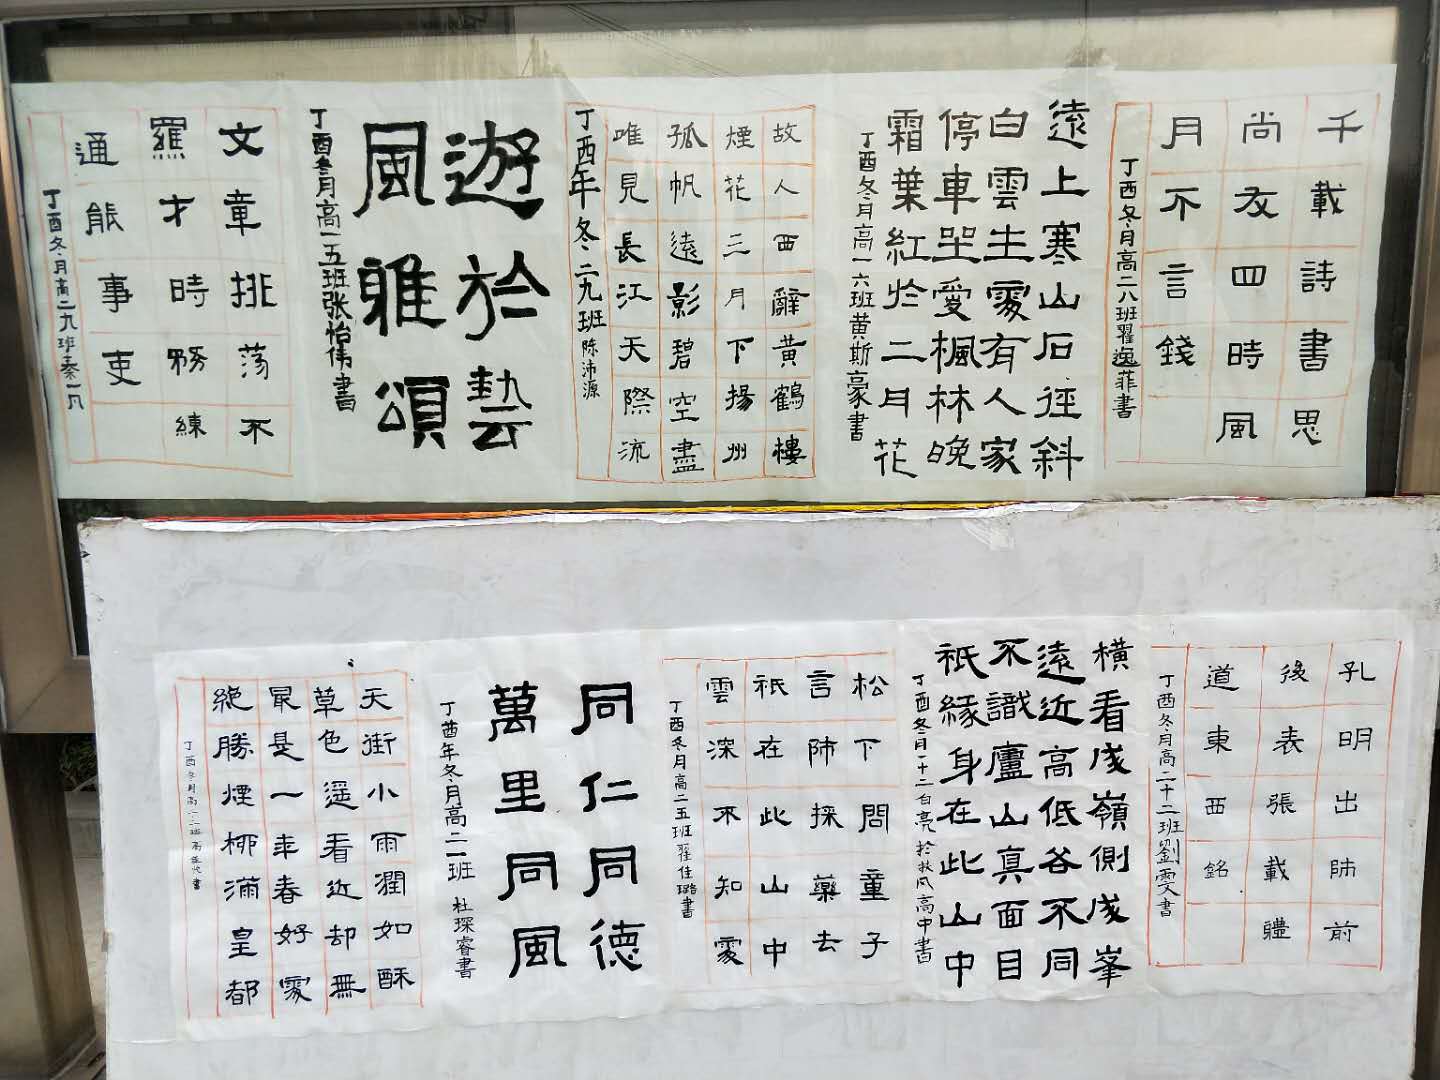 千載詩書思
尚友四時風
月不言錢
丁酉冬月高二八班翟逸菲書
遠上寒山石徑斜
白雲生處有人家
停車坐愛楓林晚
霜葉紅於二月花
丁酉冬月高一六班黄斯豪書
故人西辭黄鶴樓
煙花三月下揚州
孤帆遠影碧空盡
唯見長江天際流
丁酉年冬二九班陈沛源
遊於藝
風雅頌
丁酉冬月高一五班张怡伟書
文章排荡不
羅才時務練
通能事吏
丁酉冬月高二九班秦一凡
孔明出師前
後表張載軆
道東西銘
丁酉冬月高二十二班劉雯書
橫看成嶺側成峯
遠近高低各不同
不識廬山真面目
祇緣身在此山中
丁酉冬月十二白亮於扶风高中書
松下問童子
言師採藥去
祇在此山中
雲深不知處
丁酉冬月高二五班翟佳璐書
同仁同德
萬里同風
丁酉年冬月高二一班 杜琛睿書
天街小雨潤如酥
草色遥看近却無
最是一年春好處
絶勝煙柳滿皇都
丁酉冬月高二班